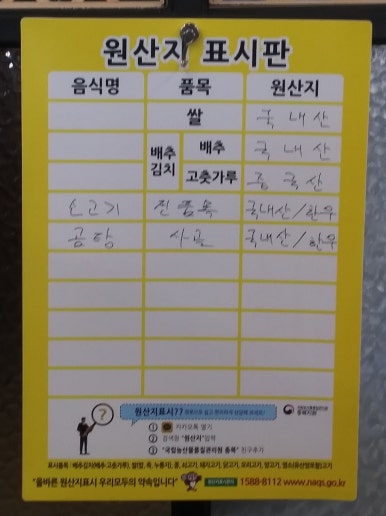 원산지 표시판
음식명 품목 원산지
쌀 국내산
배추김치 배추 국내산
고춧가루 중국산
소고기 전품목 국내산/한우
곰탕 사골 국내산/한우
원산지표시??
① 카카오톡 열기
② 검색창 "원산지"입력
③ "국립농산물품질관리원 충북" 친구추가
"올바른 원산지표시 우리모두의 약속입니다" 1588-8112 www.naqs.go.kr